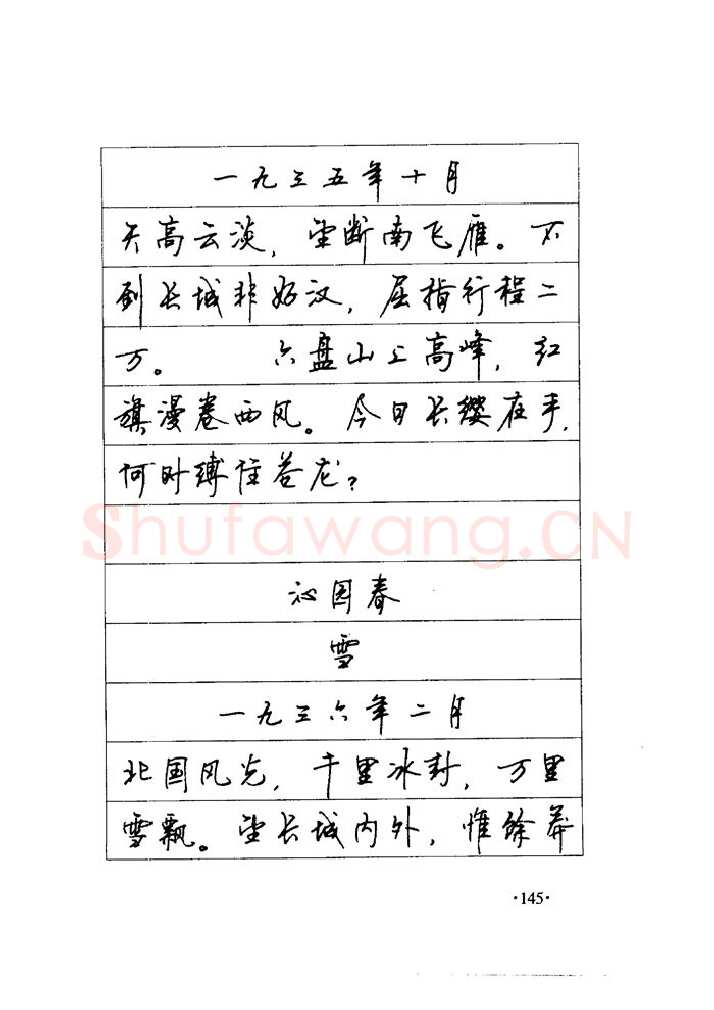 一九三五年十月
天高云淡，望断南飞雁。不
到长城非好汉，屈指行程二
万。 六盘山上高峰，红
旗漫卷西风。今日长缨在手，
何时缚住苍龙？
Shufawang.CN
沁园春
雪
一九三六年二月
北国风光，千里冰封，万里
雪飘。望长城内外，惟馀莽
·145·